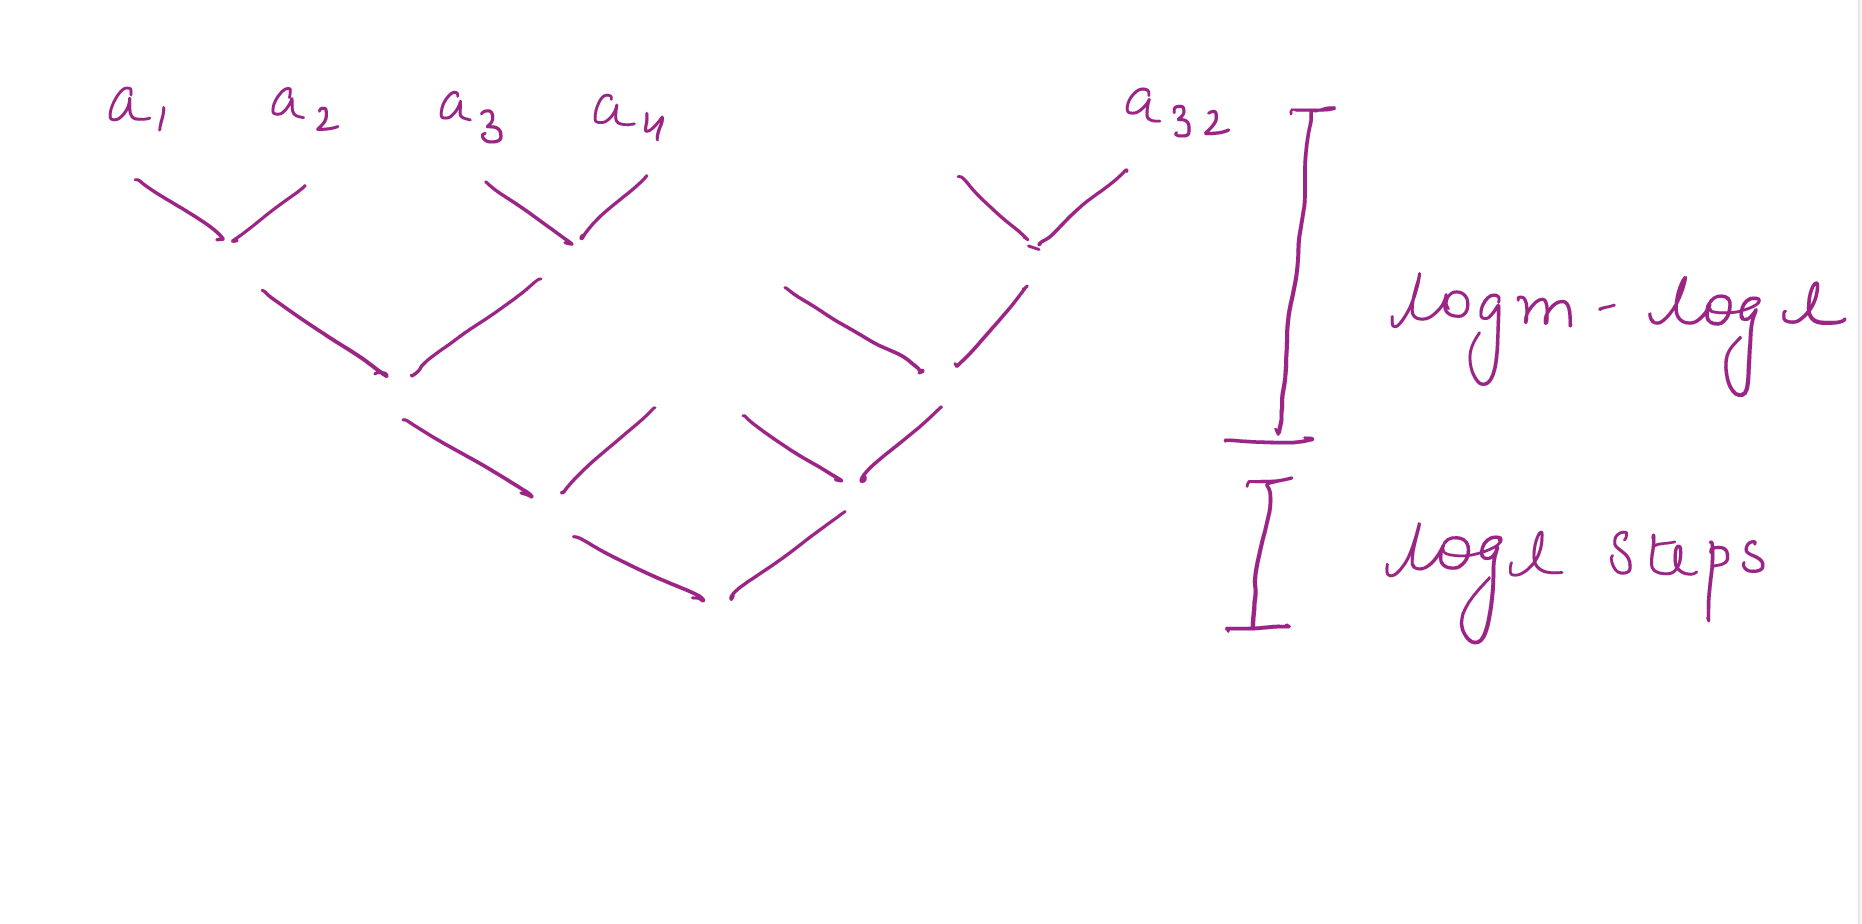 a₁ a₂ a₃ a₄ a₃₂
logm - logl
logl steps